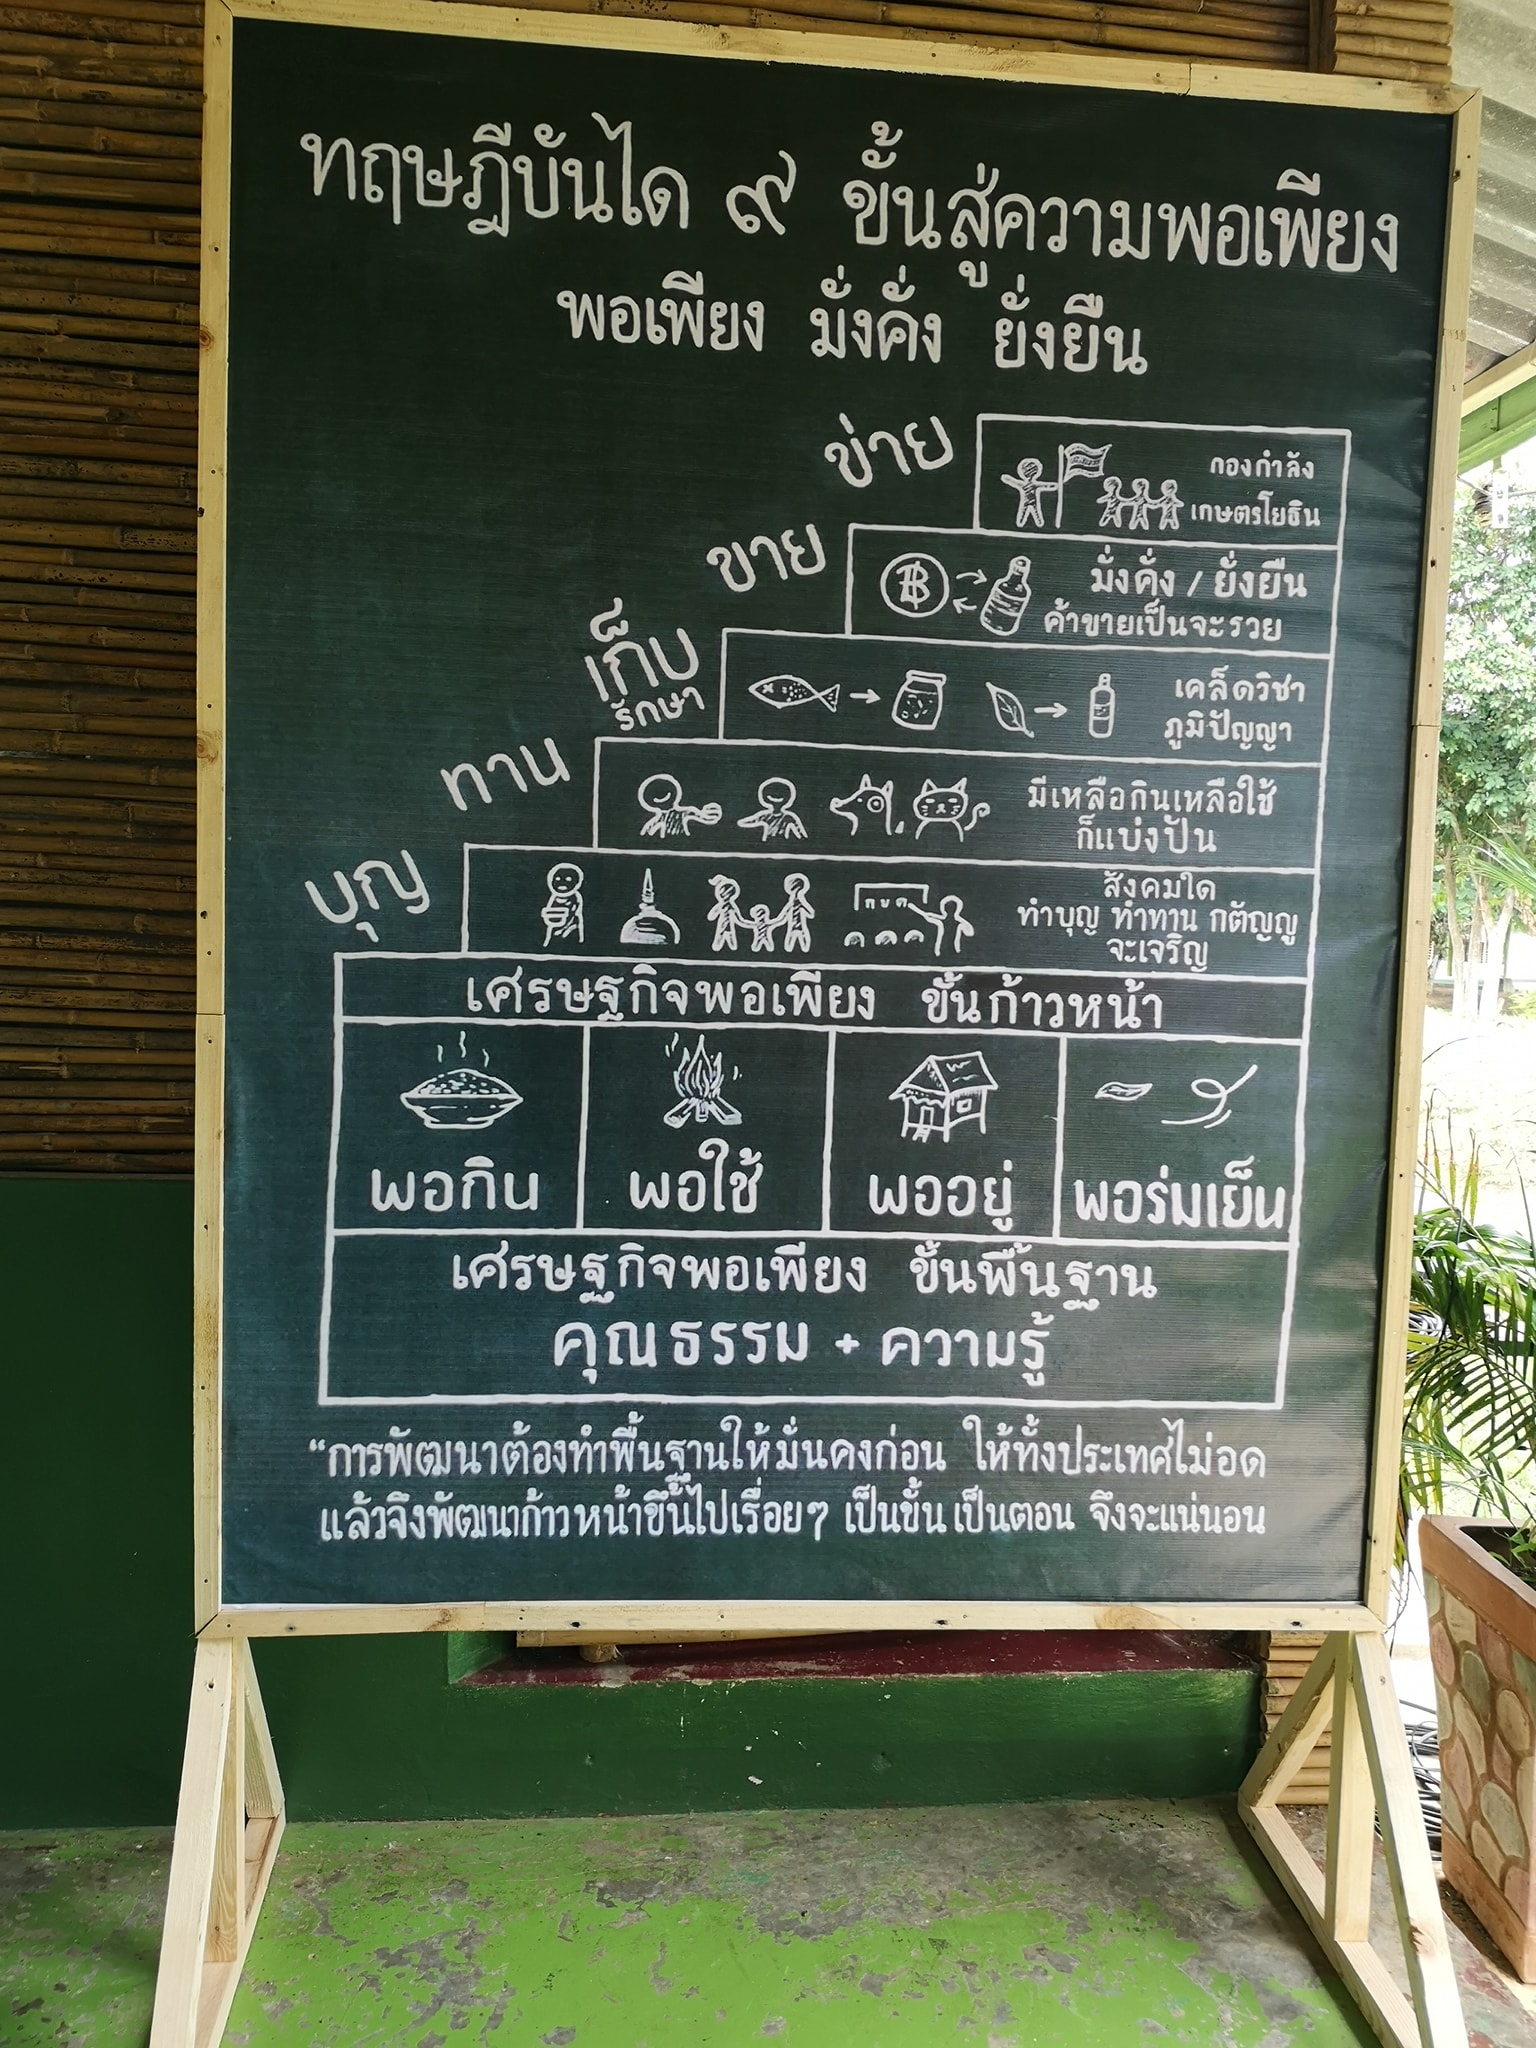 ทฤษฎีบันได ๙ ขั้นสู่ความพอเพียง
พอเพียง มั่งคั่ง ยั่งยืน
ข่าย
กองกำลัง
เกษตรโยธิน
ขาย
฿
มั่งคั่ง / ยั่งยืน
ค้าขายเป็นจะรวย
เก็บ
รักษา
เคล็ดวิชา
ภูมิปัญญา
ทาน
มีเหลือกินเหลือใช้
ก็แบ่งปัน
บุญ
สังคมใด
ทำบุญ ทำทาน กตัญญู
จะเจริญ
เศรษฐกิจพอเพียง ขั้นก้าวหน้า
พอกิน พอใช้ พออยู่ พอร่มเย็น
เศรษฐกิจพอเพียง ขั้นพื้นฐาน
คุณธรรม + ความรู้
“การพัฒนาต้องทำพื้นฐานให้มั่นคงก่อน ให้ทั้งประเทศไม่อด
แล้วจึงพัฒนาก้าวหน้าขึ้นไปเรื่อยๆ เป็นขั้น เป็นตอน จึงจะแน่นอน